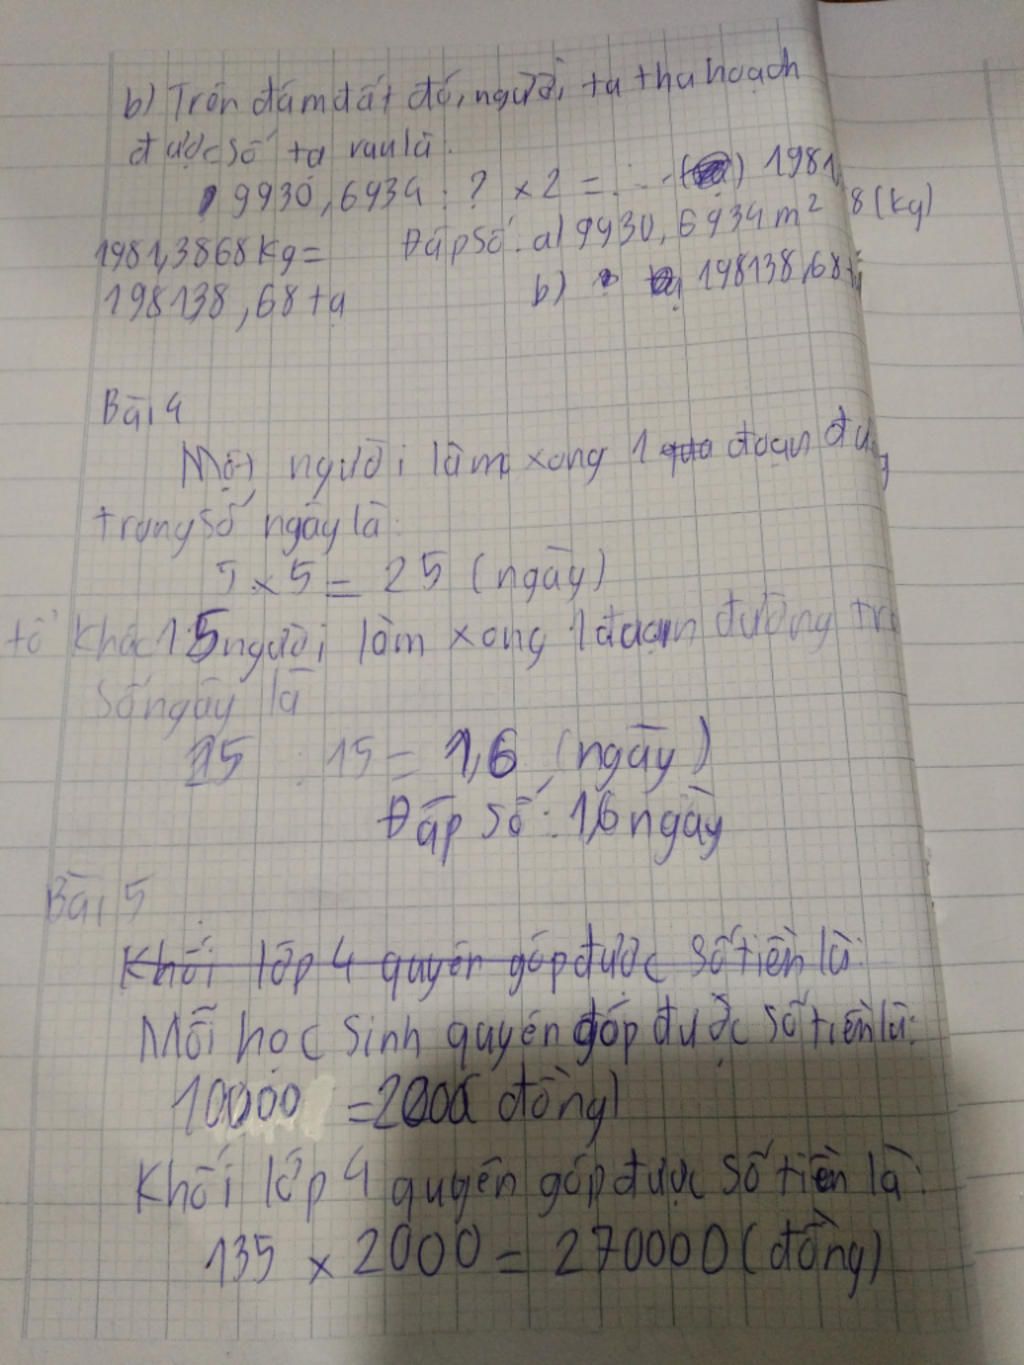 b) Trên đám đất đó, người ta thu hoạch
được số tạ rau là:
9930,6934 : ? × 2 = ... () 1981,
8 (kg)
1981,3868 kg = Đáp số: a) 9930,6934 m²
198138,68 tạ b) 198138,68 tạ
Bài 4
Một người làm xong 1 đoạn
trong số ngày là:
5 × 5 = 25 (ngày)
tổ khác 15 người làm xong 1 đoạn đường
số ngày là
25 : 15 = 1,6 (ngày)
Đáp số: 1,6 ngày
Bài 5
Khối lớp 4 quyên góp được số tiền là:
Mỗi học sinh quyên góp được số tiền là:
10000 = 2000 đồng)
Khối lớp 4 quyên góp được số tiền là:
135 × 2000 = 270000 (đồng)